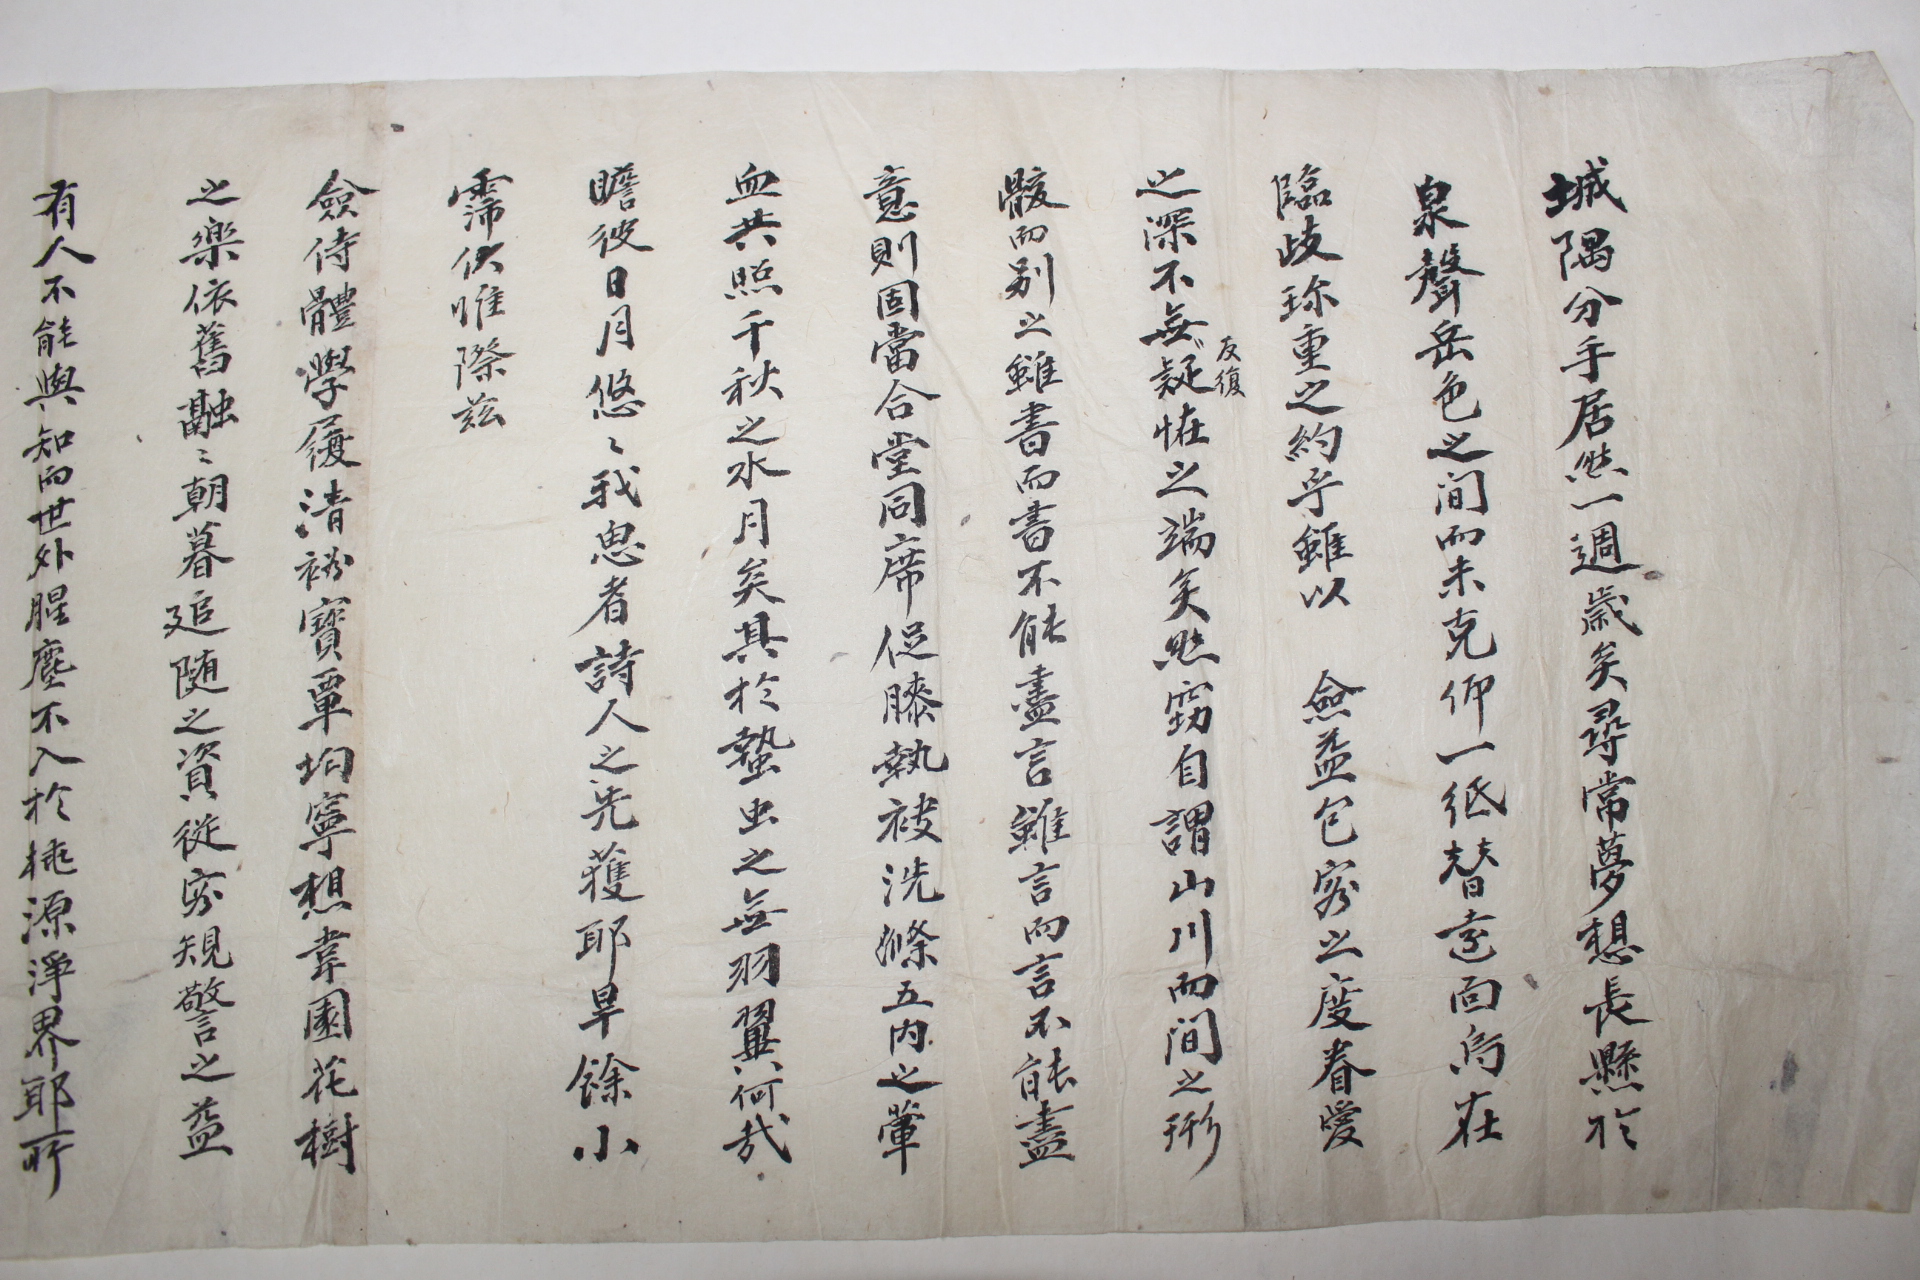 城隅分手居然一週歲矣尋常夢想長懸於
泉聲岳色之間而未克仰一紙替壹面烏在
臨歧珍重之約乎雖以 僉益包容之度眷愛
之深不無疑恠之端矣然竊自謂山川而間之形
反復
骸而別之雖書而書不能盡言雖言而言不能盡
意則固當合堂同席促膝執袂洗滌五內之葷
血共照千秋之水月矣其於蟄虫之無羽翼何哉
瞻彼日月悠〻我思者詩人之先獲耶旱餘小
霈伏惟際玆
僉侍體學履清 寶覃均寧想韋園花樹
之樂依舊融〻朝暮追随之資從容規警之益
有人不能與知而世外腥塵不入於桃源淨界耶所